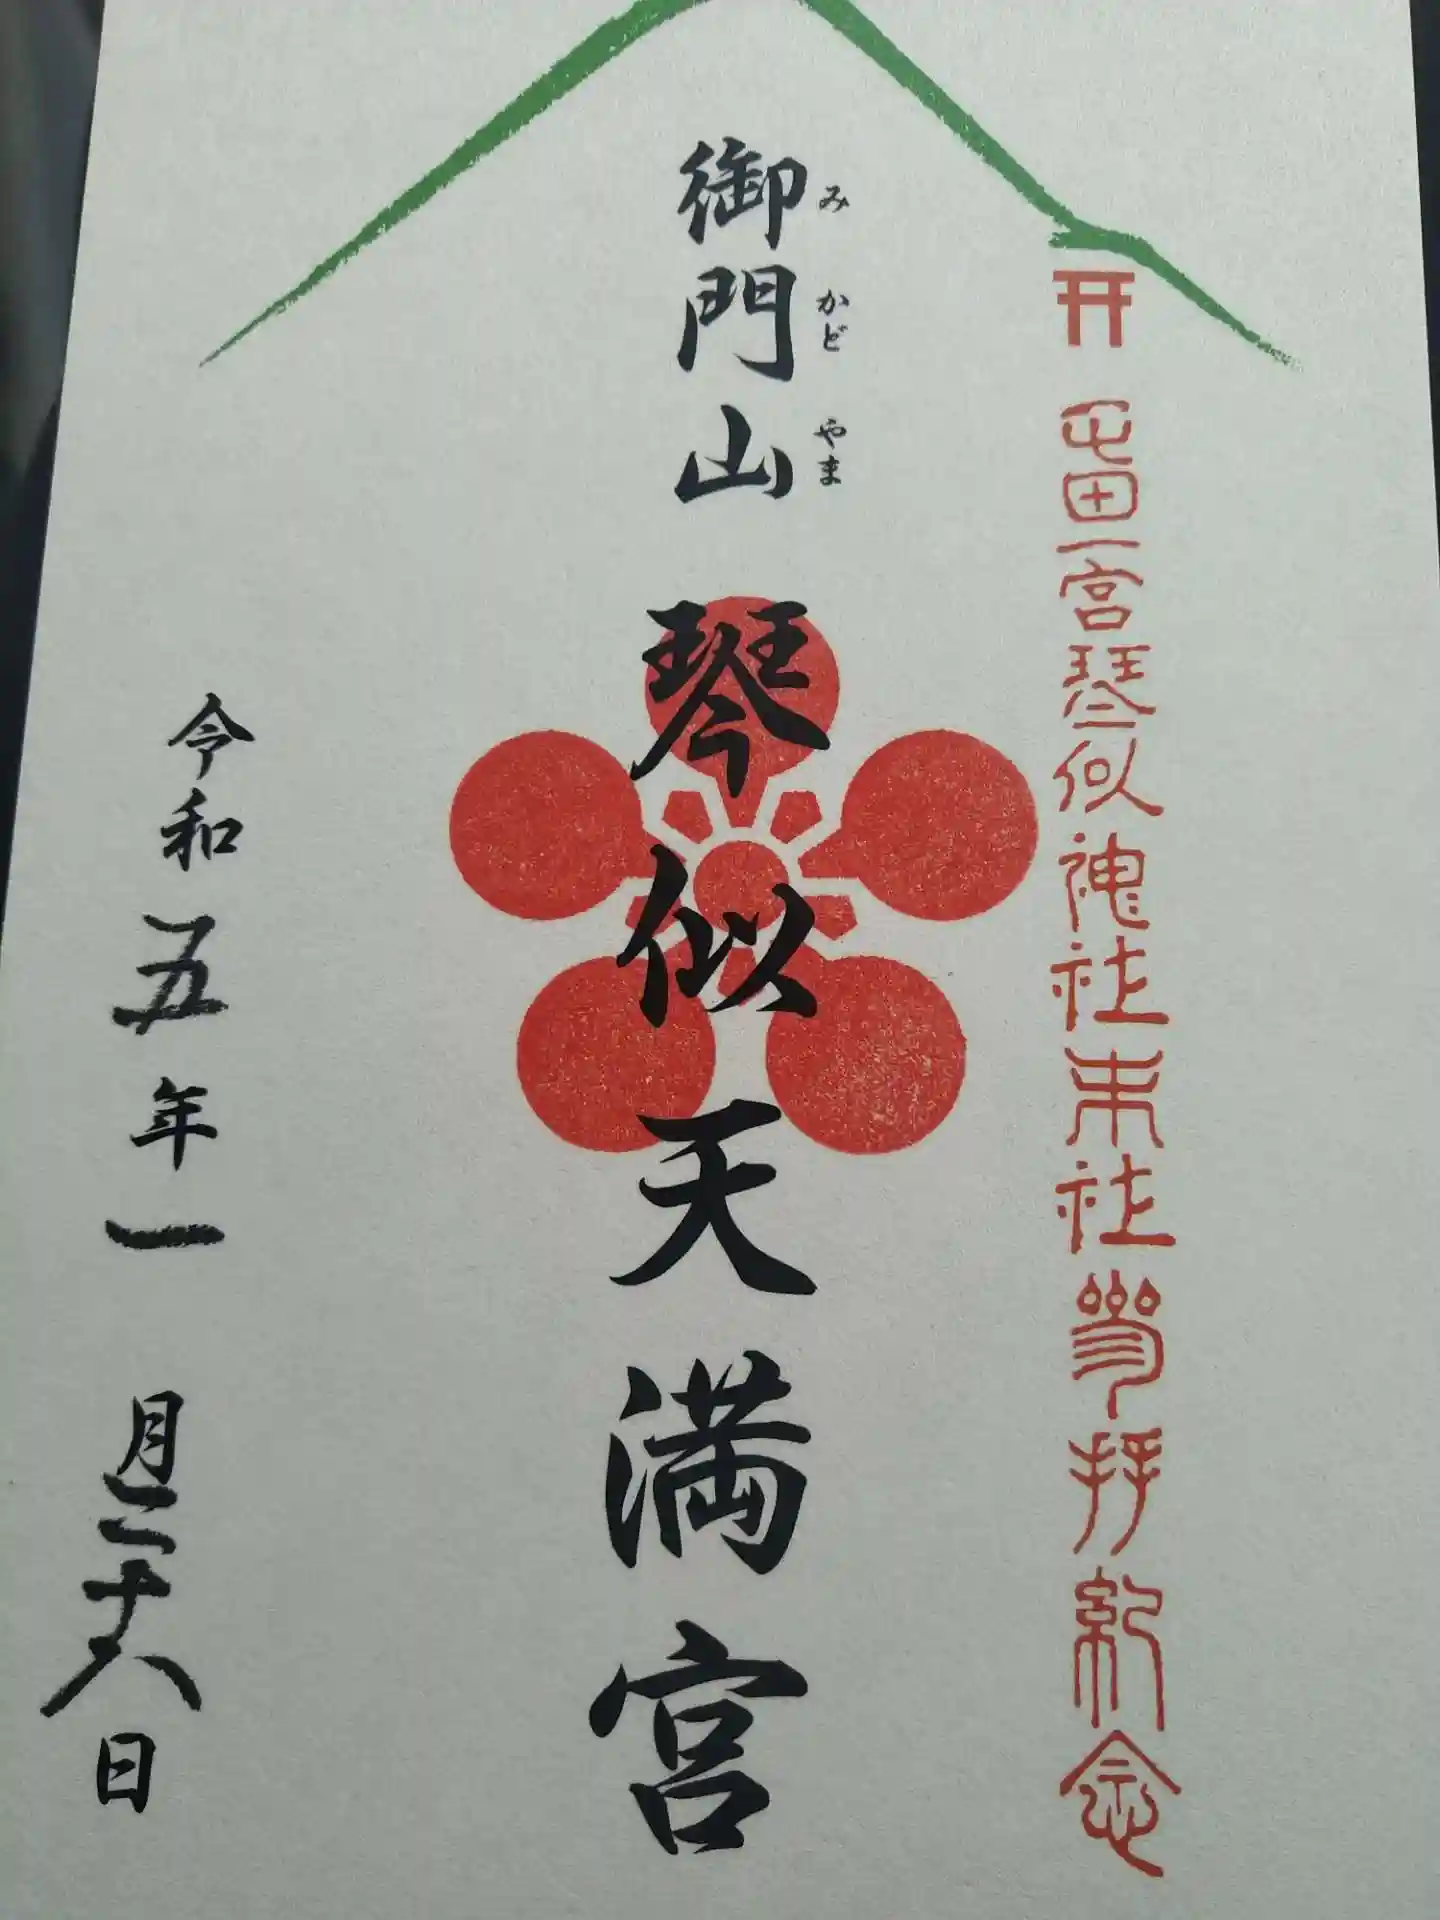 屯田一宮琴似神社末社参拝紀念
御門山
みかどやま
琴似天満宮
令和五年一月二十八日